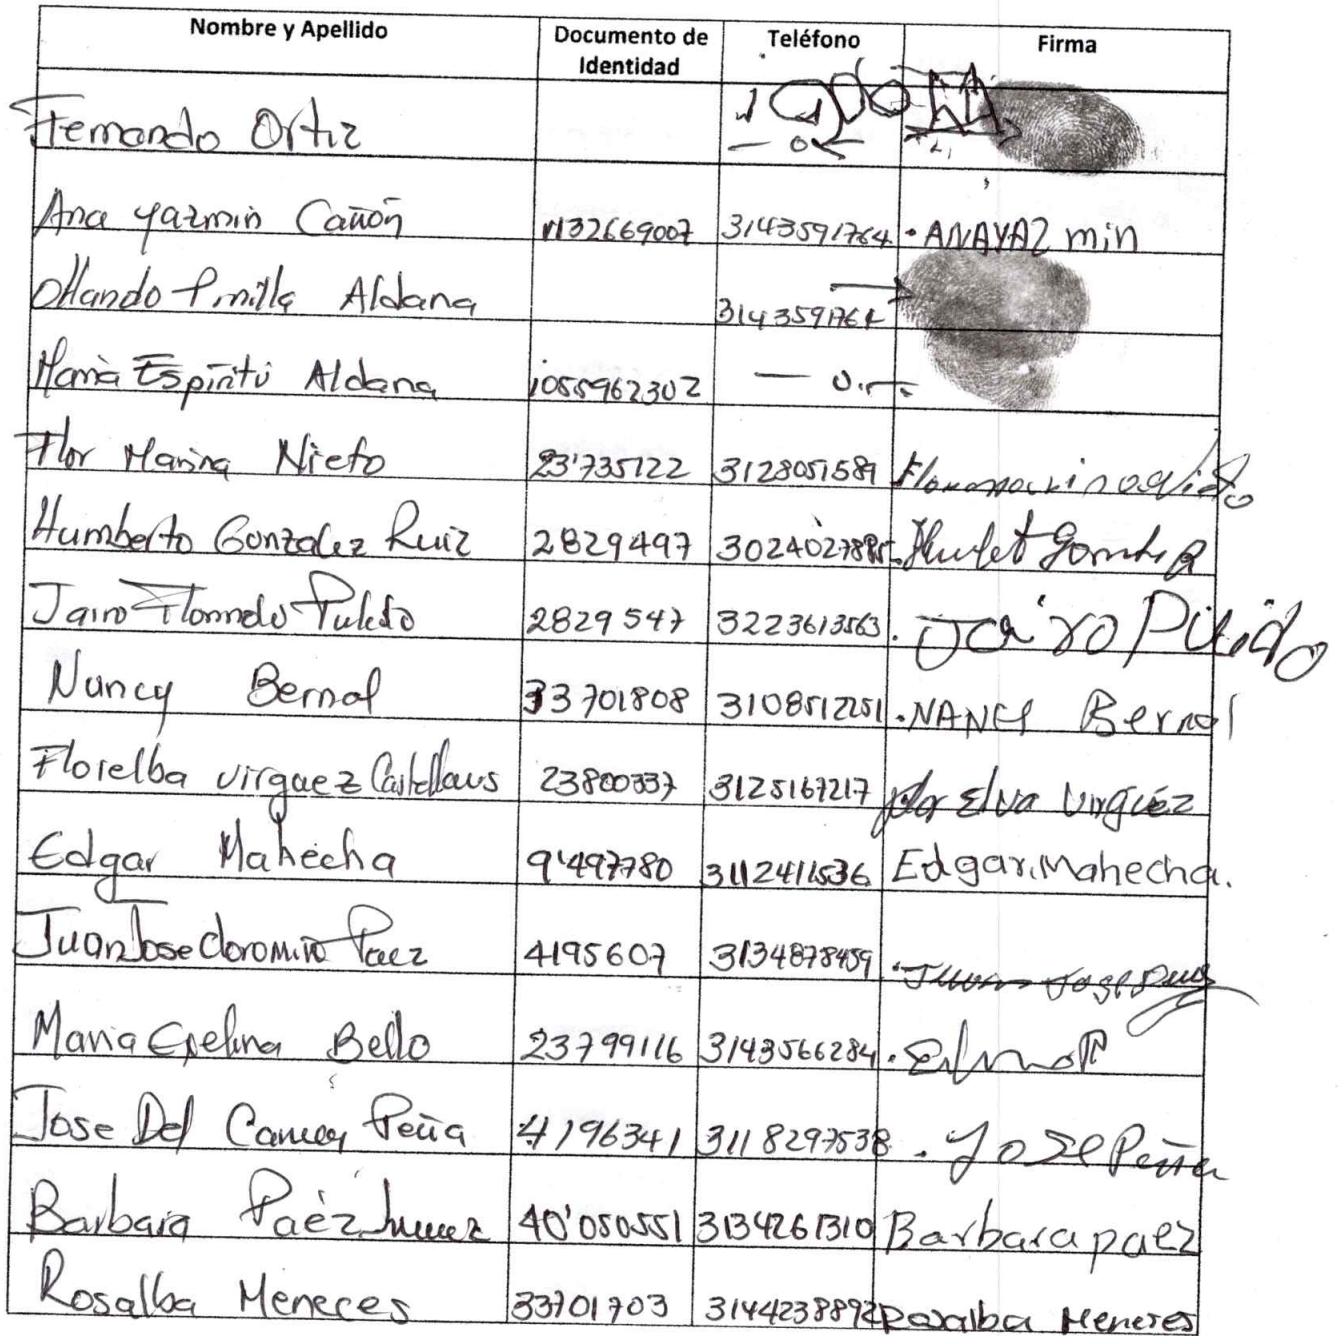 Nombre y Apellido Documento de Identidad Teléfono Firma
Fernando Ortiz
Ana Yazmin Cañón 1132669007 3143591764 ANAYAZ min
Orlando Pinilla Aldana 3143591764
Maria Espiritu Aldana 1055962302
Flor Marina Nieto 23'735122 3128051589
Humberto Gonzalez Ruiz 2829497
Jairo Pulido 2829547 3223613563 Jairo Pulido
Nancy Bernal 33701808 3108512251 NANCY Bernal
Florelba virguez Castellanos 23800337 3125167217 flor Elva Virguez
Edgar Mahecha 9'497780 3112411536 Edgar Mahecha.
Juan Jose Cloromiro Paez 4195607 3134878459 Juan Jose Paez
Maria Bello 23799116 3143566284
Jose Del Carmen Peña 4196341 3118297538 Jose Peña
Barbara Paéz 40'050551 3134261310 Barbara paez
Rosalba Meneces 33701703 3144238892 Rosalba Meneses